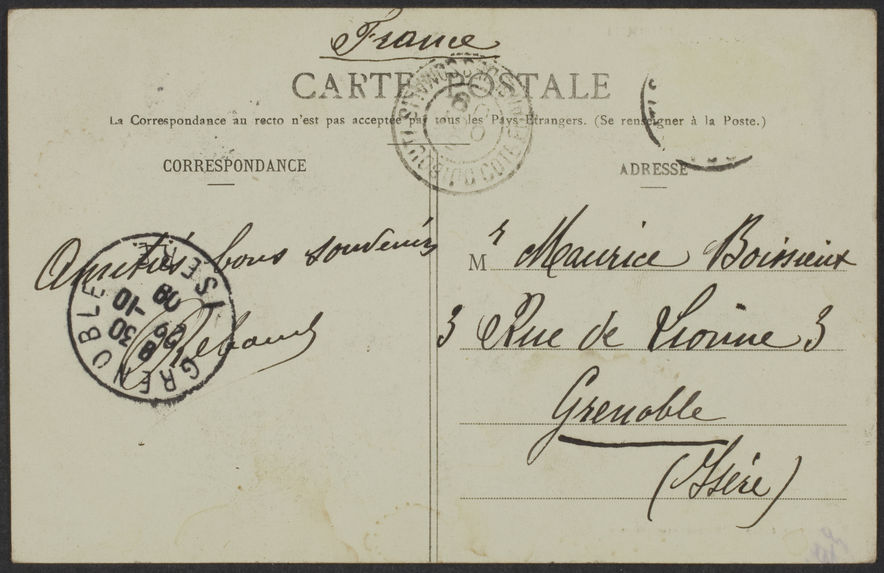 France
CARTE POSTALE
La Correspondance au recto n'est pas acceptée par tous les Pays Etrangers. (Se renseigner à la Poste.)
CORRESPONDANCE
ADRESSE
Amitiés bons souvenirs
Mr Maurice Boissieux
3 Rue de Lionne 3
Grenoble
(Isère)
GRENOBLE ISERE
8 30
26 -10
09
DJIBOUTI